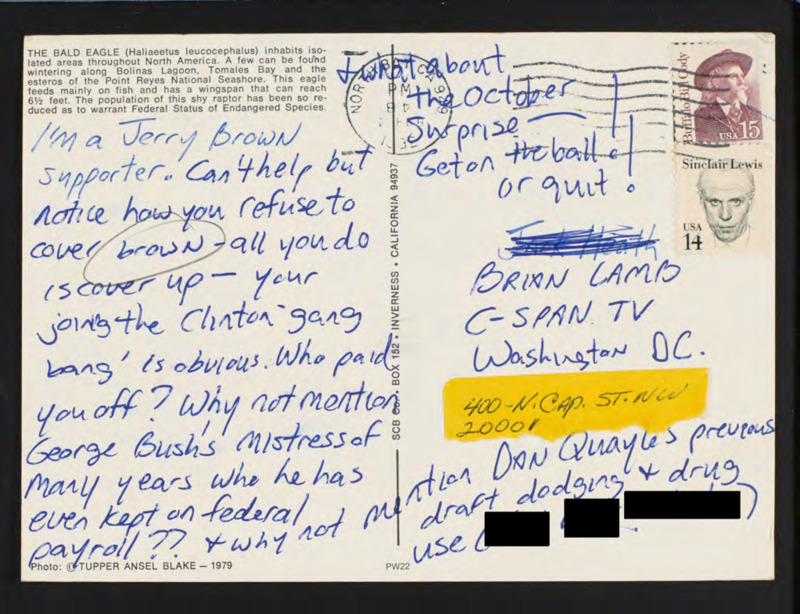 THE BALD EAGLE (Haliaeetus leucocephalus) inhabits iso-
lated areas throughout North America. A few can be found
wintering along Bolinas Lagoon, Tomales Bay and the
esteros of the Point Reyes National Seashore. This eagle
feeds mainly on fish and has a wingspan that can reach
6½ feet. The population of this shy raptor has been so re-
duced as to warrant Federal Status of Endangered Species.
I'm a Jerry Brown
supporter. Can't help but
notice how you refuse to
cover brown - all you do
is cover up — your
joing the Clinton "gang
bang' is obvious. Who paid
you off? Why not mention
George Bush's Mistress of
Many years who he has
even kept on federal
payroll?? + why not mention DAN Quayle's previous
draft dodging + drug
use (
+ what about
the October
Surprise —
Get on the ball!
or quit!
Photo: © TUPPER ANSEL BLAKE — 1979
PW22
SCB Co. • BOX 152 • INVERNESS • CALIFORNIA 94937
NORTH BAY, CA 949
PM
Buffalo Bill Cody
USA 15
Sinclair Lewis
USA
14
BRIAN LAMB
C-SPAN TV
Washington D.C.
400-N. CAP. ST. NW
20001